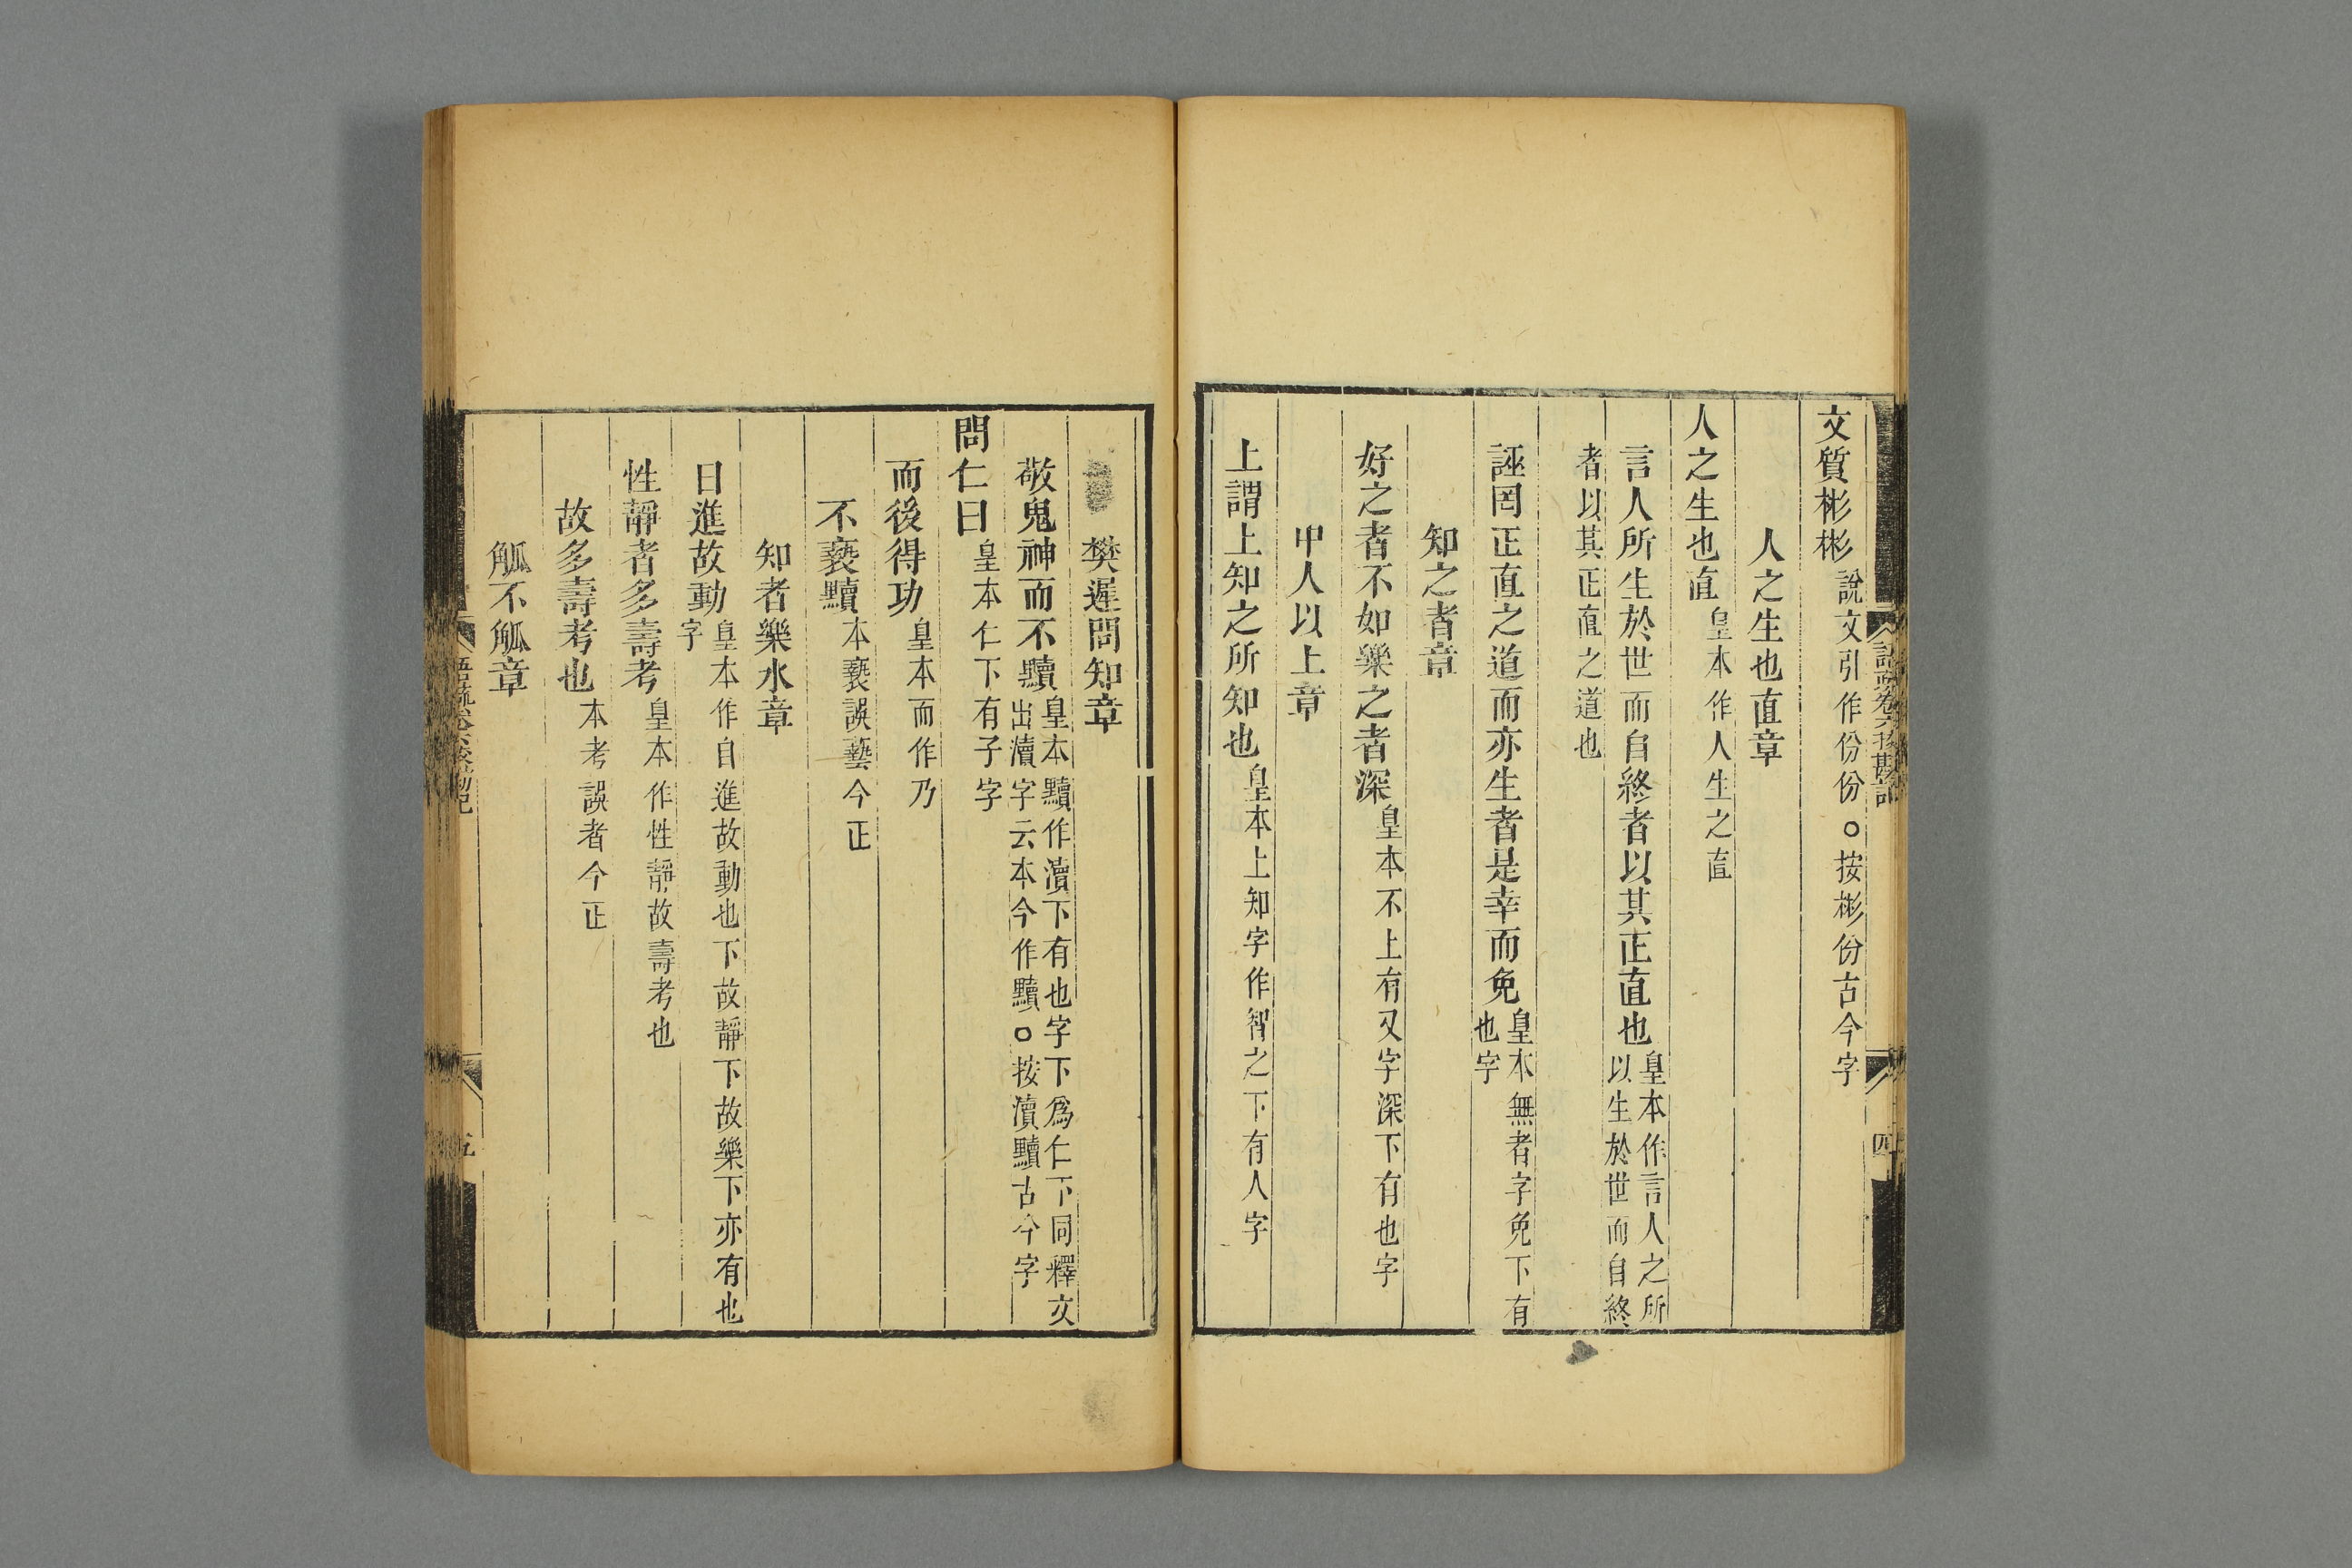 文質彬彬說文引作份份○按彬份古今字
人之生也直章
人之生也直皇本作人生之直
言人所生於世而自終者以其正直也皇本作言人之所以生於世而自終
者以其正直之道也
誣罔正直之道而亦生者是幸而免皇本無者字免下有也字
知之者章
好之者不如樂之者深皇本不上有又字深下有也字
中人以上章
上謂上知之所知也皇本上知字作智之下有人字
語疏卷六挍勘記
四
樊遲問知章
敬鬼神而不黷皇本黷作瀆下有也字下爲仁下同釋文出瀆字云本今作黷○按瀆黷古今字
問仁曰皇本仁下有子字
而後得功皇本而作乃
不褻黷本褻誤藝今正
知者樂水章
日進故動皇本作自進故動也下故靜下故樂下亦有也字
性靜者多壽考皇本作性靜故壽考也
故多壽考也本考誤者今正
觚不觚章
語疏卷六挍勘記
五